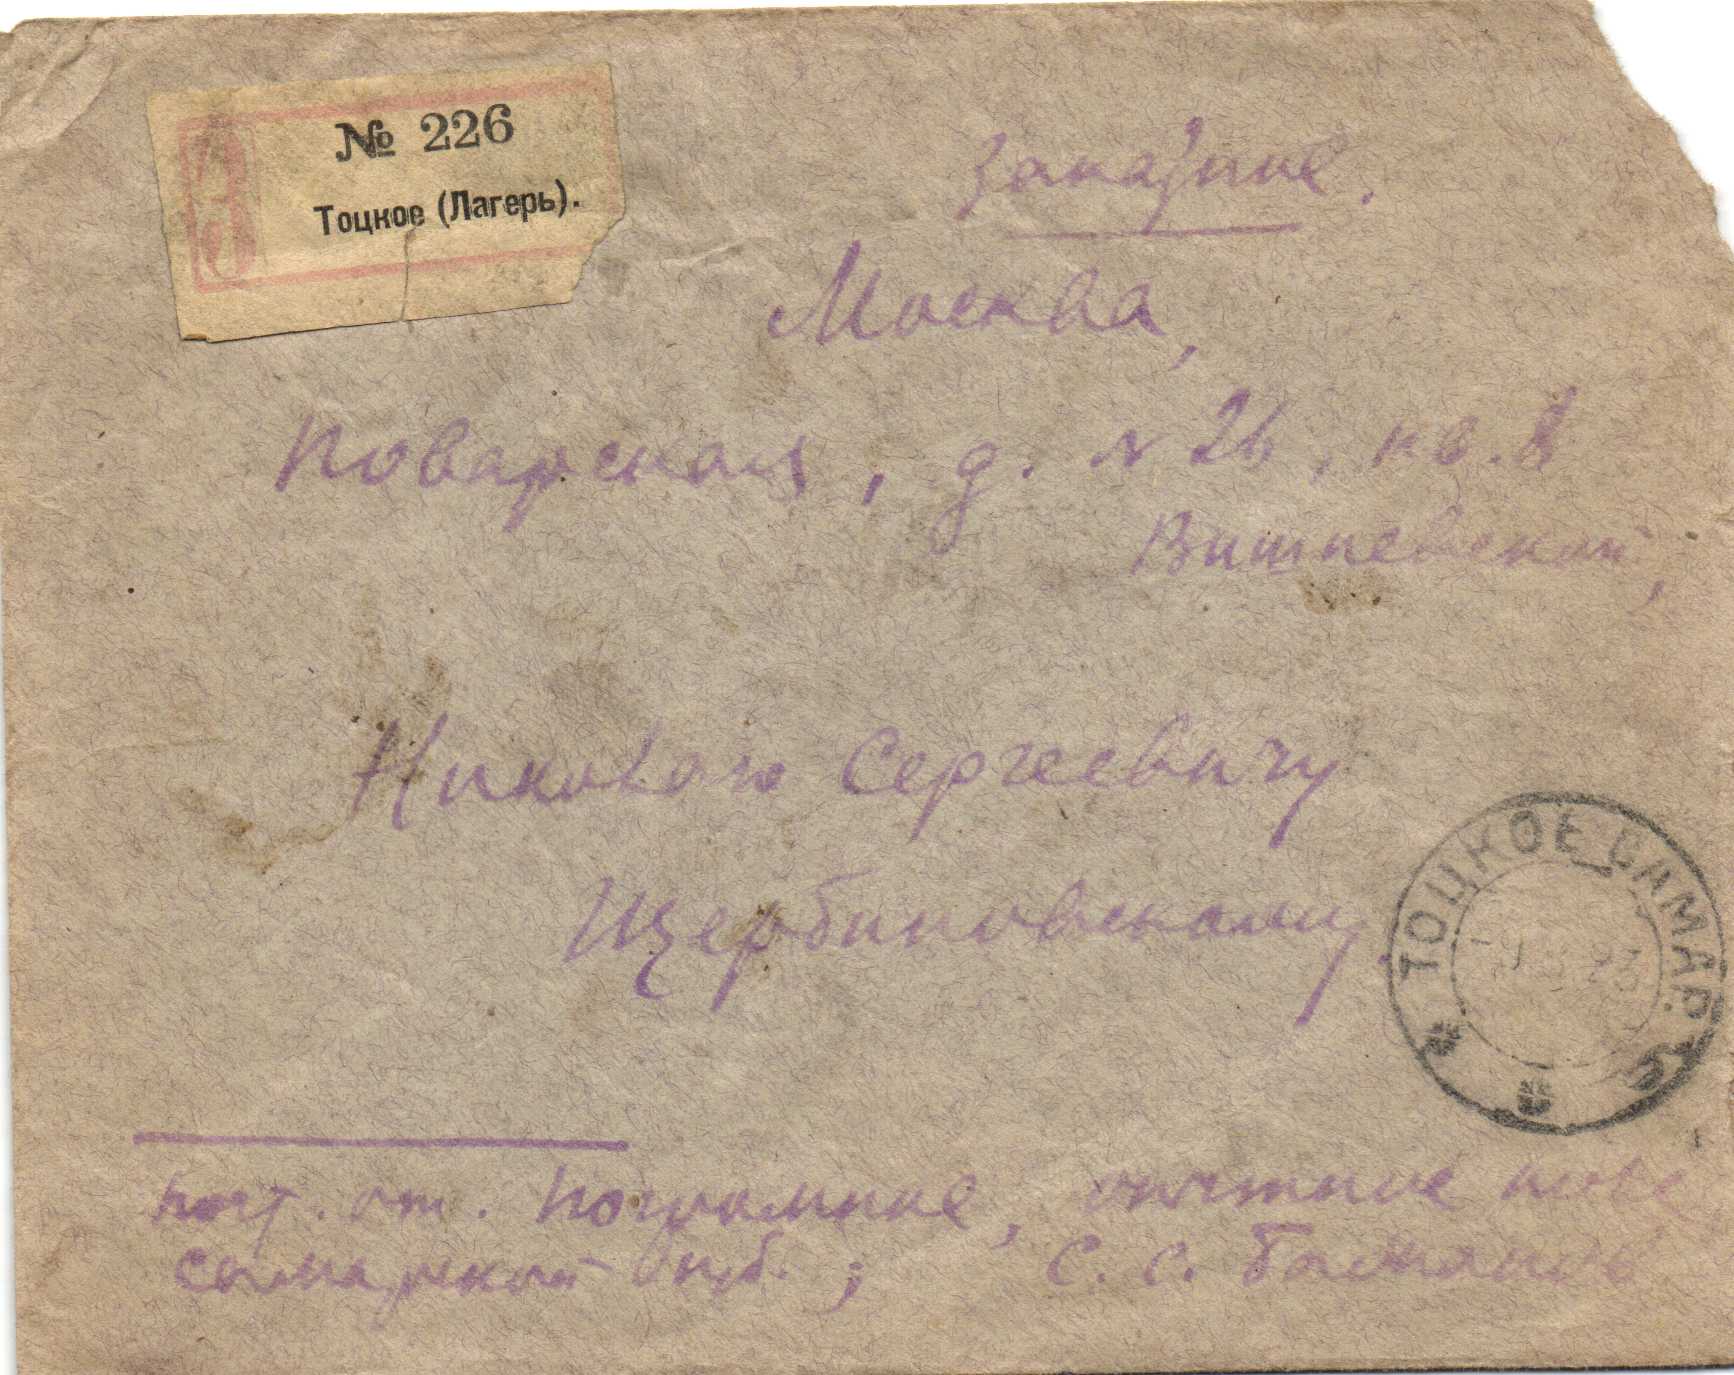 З
№ 226
Тоцкое (Лагерь).
Заказное.
Москва,
Поварская, д. № 26, кв. 8
Вишневской,
Николаю Сергеевичу
Щербиновскому.
ТОЦКОЕ САМАР.
Почт. от. Погромное, опытное поле
Самарской губ.; С. С.